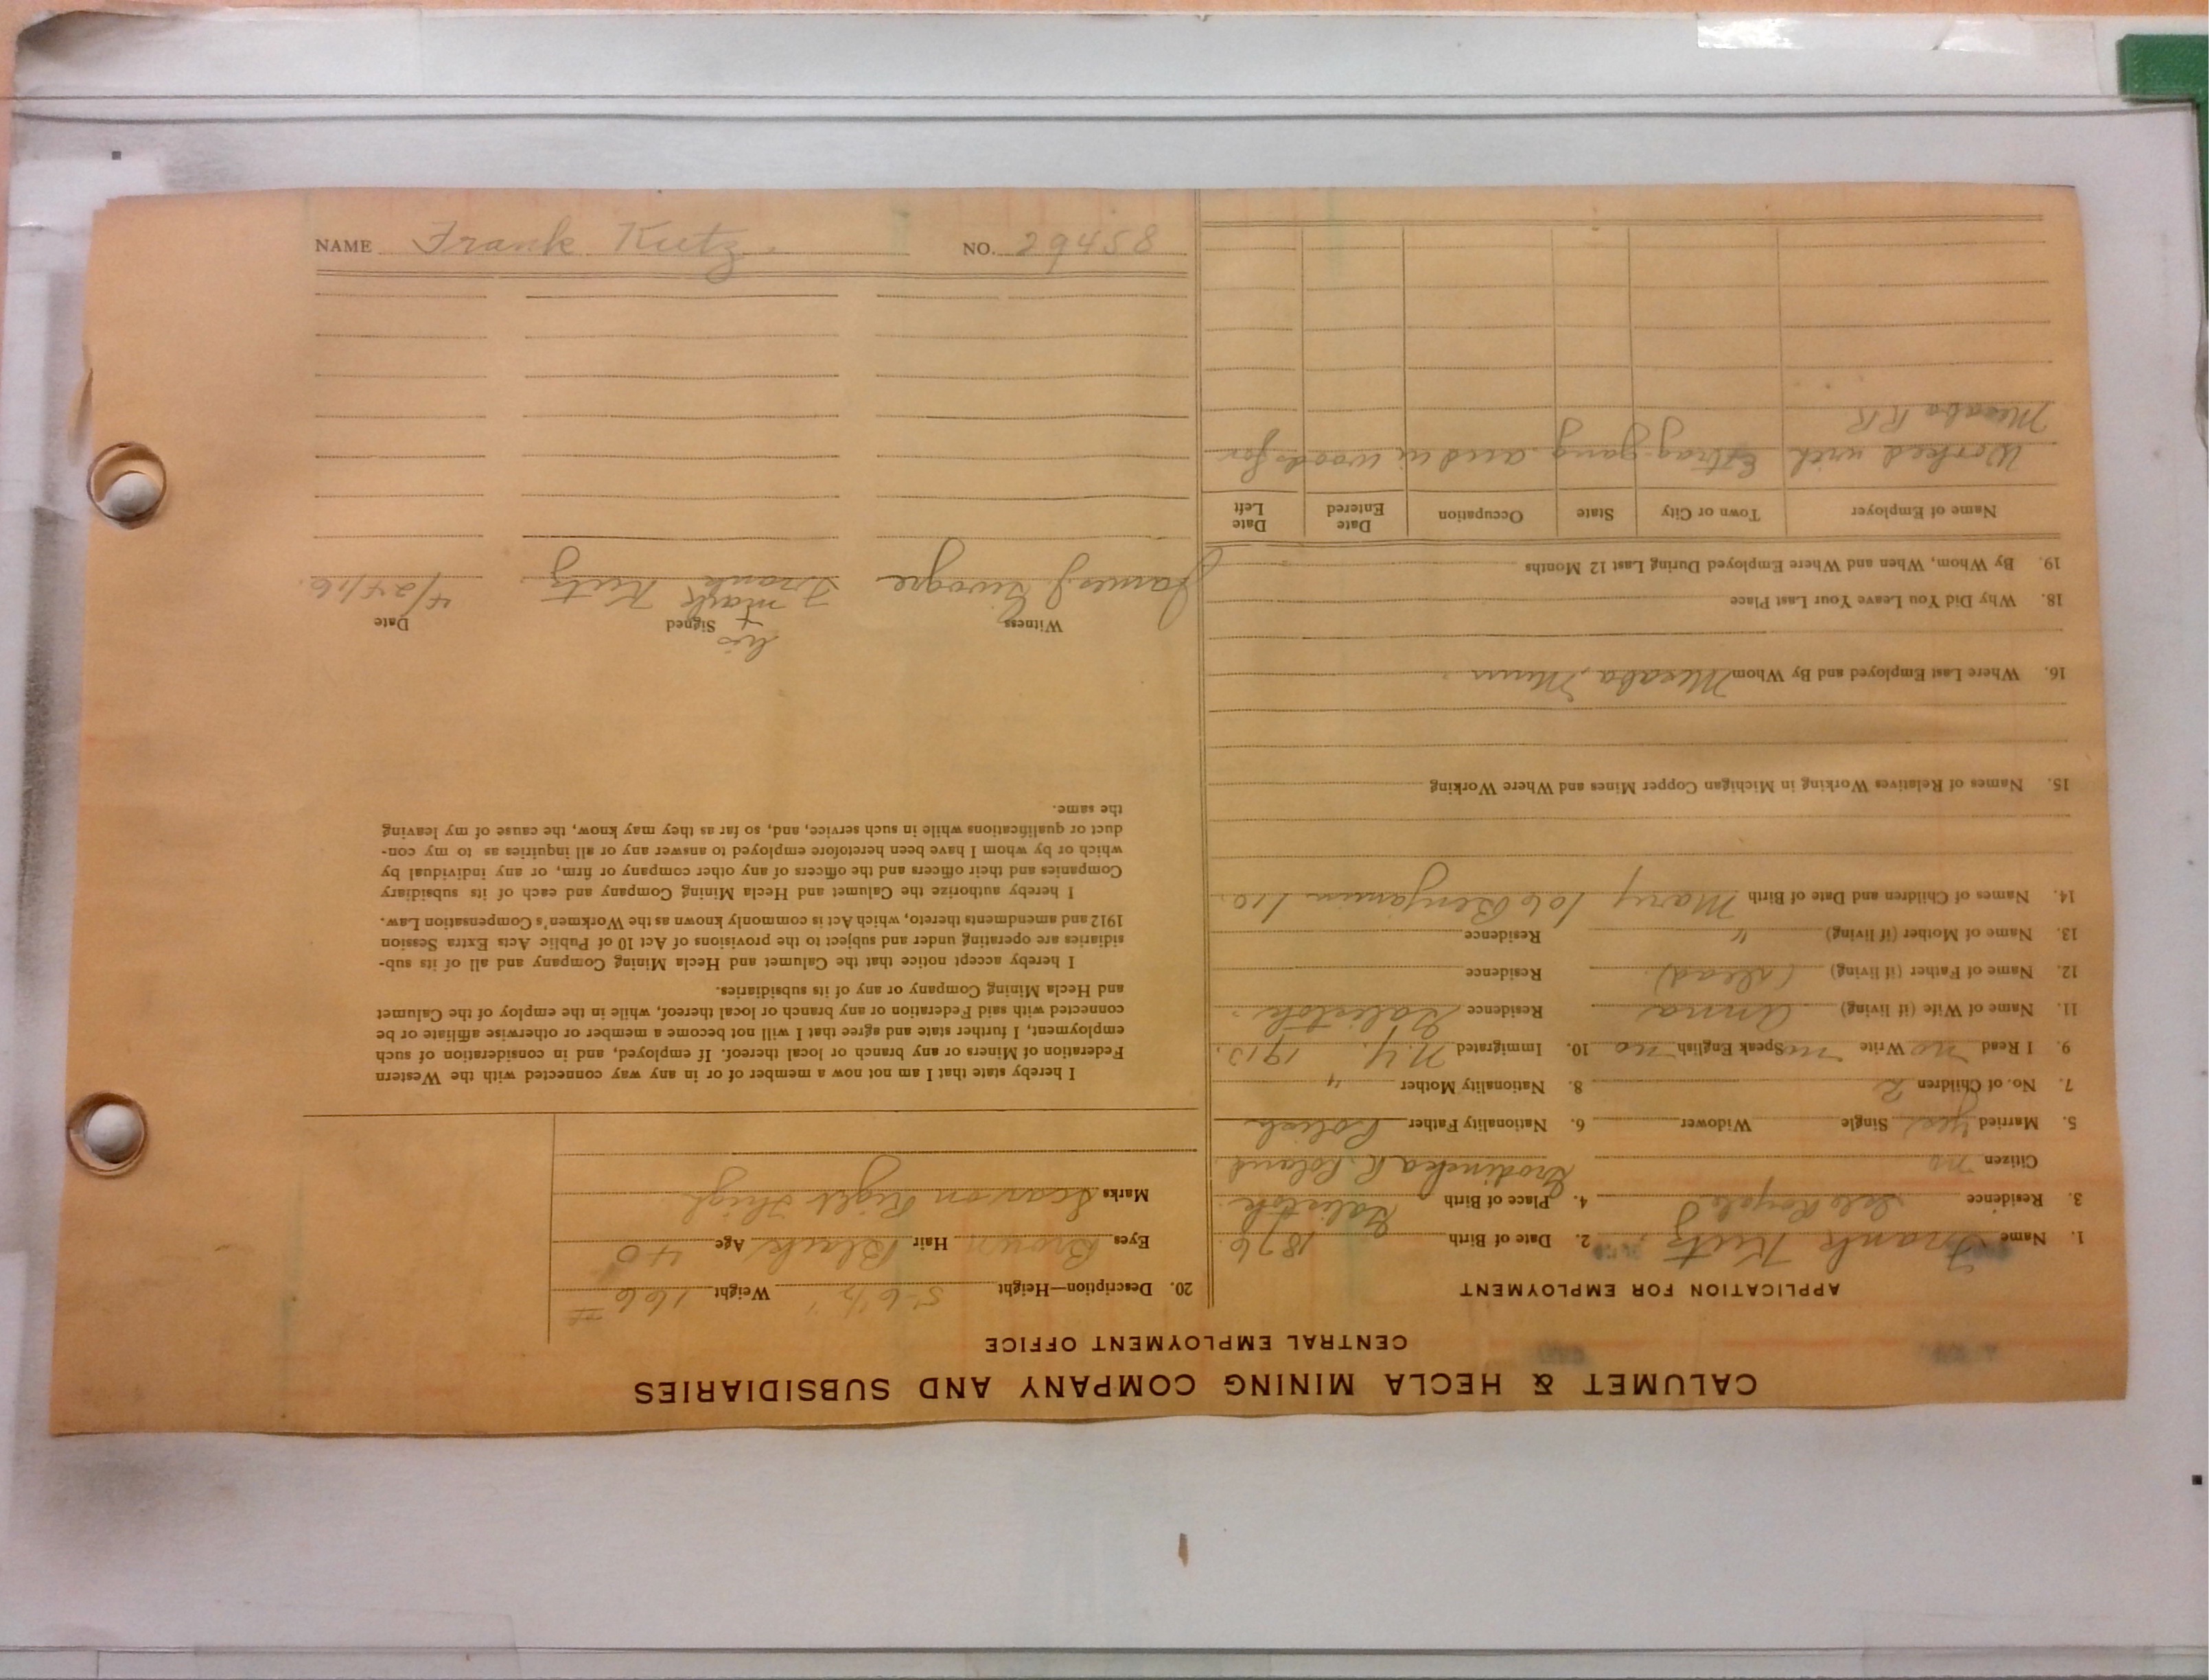 CALUMET & HECLA MINING COMPANY AND SUBSIDIARIES
CENTRAL EMPLOYMENT OFFICE
APPLICATION FOR EMPLOYMENT
1. Name Frank Kutz. 2. Date of Birth 1876
3. Residence Isle Royale 4. Place of Birth Galistok
Citizen no Grodinska R. Poland
5. Married Yes Single Widower 6. Nationality Father Polish
7. No. of Children 2 8. Nationality Mother "
9. I Read no Write no Speak English no 10. Immigrated N.Y. 1913.
11. Name of Wife (if living) Anna Residence Galistok.
12. Name of Father (if living) (dead) Residence
13. Name of Mother (if living) " Residence
14. Names of Children and Date of Birth Mary 10 Benjamin
15. Names of Relatives Working in Michigan Copper Mines and Where Working
16. Where Last Employed and By Whom Mesaba, Minn
18. Why Did You Leave Your Last Place
19. By Whom, When and Where Employed During Last 12 Months
Name of Employer Town or City State Occupation Date Entered Date Left
Worked with Extra gang and in woods for
Mesaba RR
20. Description—Height 5-6½" Weight 166 #
Eyes Brown Hair Black Age 40
Marks Scar on Right Thigh
I hereby state that I am not now a member of or in any way connected with the Western
Federation of Miners or any branch or local thereof. If employed, and in consideration of such
employment, I further state and agree that I will not become a member or otherwise affiliate or be
connected with said Federation or any branch or local thereof, while in the employ of the Calumet
and Hecla Mining Company or any of its subsidiaries.
I hereby accept notice that the Calumet and Hecla Mining Company and all of its sub-
sidiaries are operating under and subject to the provisions of Act 10 of Public Acts Extra Session
1912 and amendments thereto, which Act is commonly known as the Workmen's Compensation Law.
I hereby authorize the Calumet and Hecla Mining Company and each of its subsidiary
Companies and their officers and the officers of any other company or firm, or any individual by
which or by whom I have been heretofore employed to answer any or all inquiries as to my con-
duct or qualifications while in such service, and, so far as they may know, the cause of my leaving
the same.
Witness Signed Date
his
+
mark
James J. Frank Kutz 4/24/16.
NAME Frank Kutz. NO. 29458